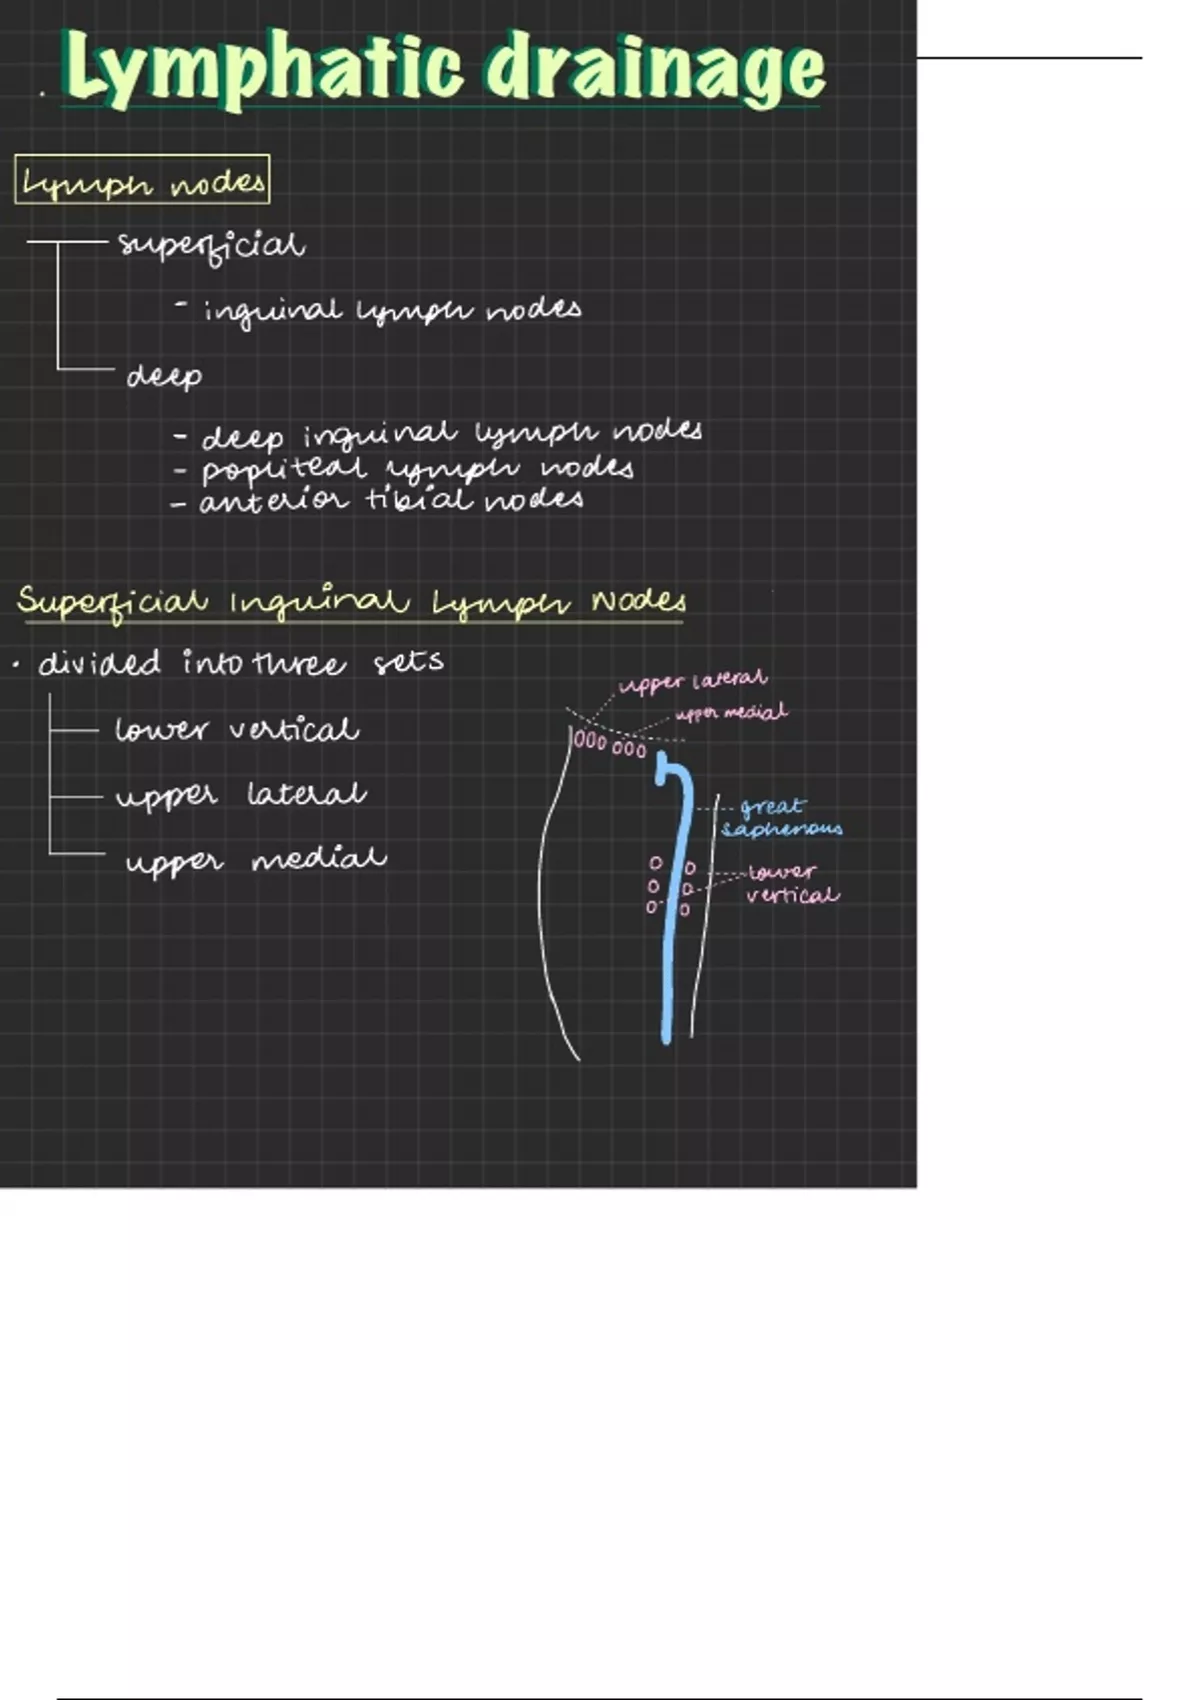 Lymphatic drainage
Lymph nodes
superficial
- inguinal lymph nodes
deep
- deep inguinal lymph nodes
- popliteal lymph nodes
- anterior tibial nodes
Superficial Inguinal Lymph Nodes
• divided into three sets
lower vertical
upper lateral
upper medial
upper lateral
upper medial
great
saphenous
lower
vertical